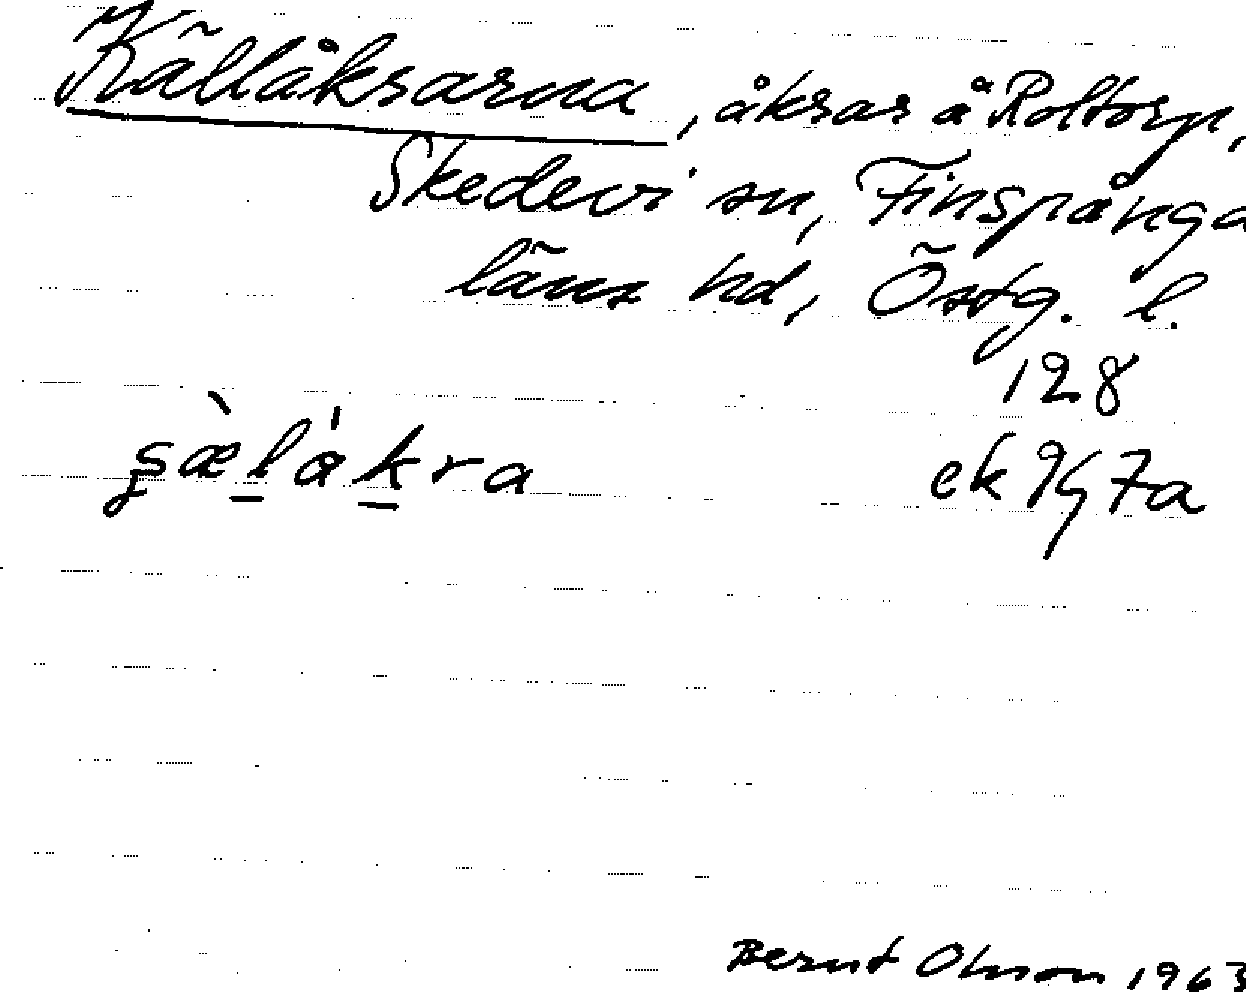 Källåkrarna, åkrar å Roltorp,
Skedevi sn, Finspånga
läns hd, Östg. l.
128
s̨æ̀lǻkra ek 9G7a
Bernt Olsson 1963